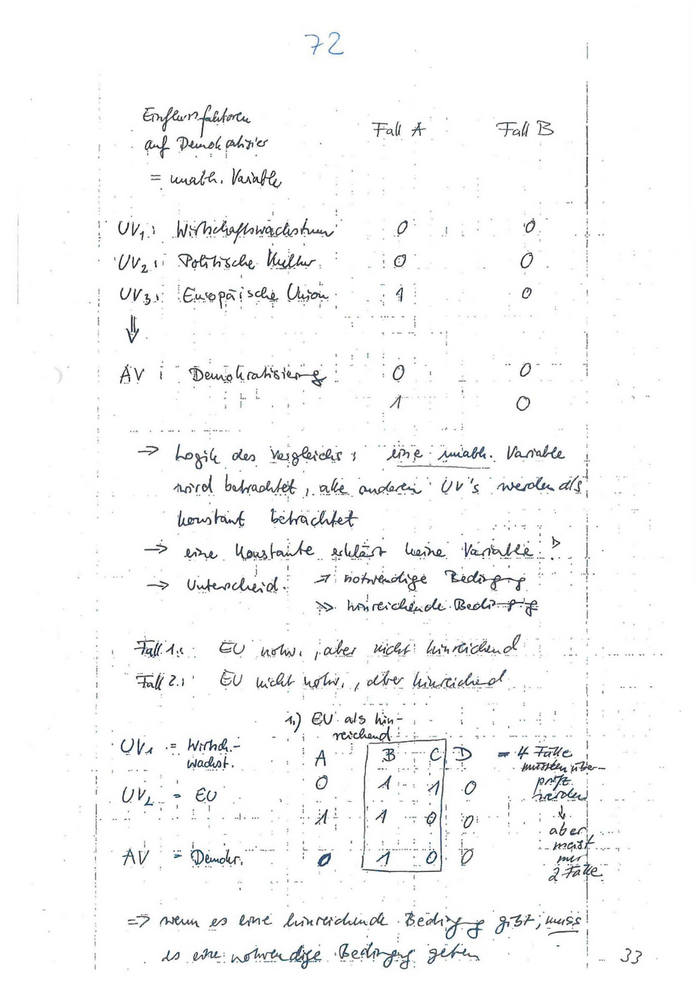 72
Einflussfaktoren
auf Demokratisier
= unabh. Variable
Fall A Fall B
UV₁: Wirtschaftswachstum 0 0
UV₂: Politische Kultur 0 0
UV₃: Europäische Union 1 0
⇓
AV : Demokratisierg 0 0
1 0
→ Logik des Vergleichs: eine unabh. Variable
wird betrachtet, alle anderen UV's werden als
konstant betrachtet
→ eine Konstante erklärt keine Variable
→ Unterscheid. → notwendige Bedingg
≫ hinreichende Bedingg
Fall 1.: EU notw., aber nicht hinreichend
Fall 2.: EU nicht notw., aber hinreichend
1.) EU als hin-
reichend
UV₁ = Wirtsch.-
wachst.
A B C D = 4 Fälle
müssten über-
prüft
werden
0 1 1 0
UV₂ = EU
1 1 0 0
↓
aber
meist
nur
2 Fälle
AV = Demokr. 0 1 0 0
=> wenn es eine hinreichende Bedingg gibt, muss
es eine notwendige Bedingg geben
33